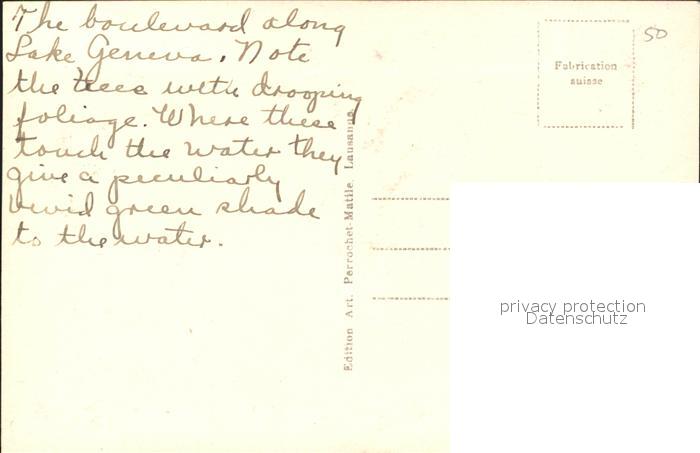 The boulevard along
Lake Geneva. Note
the trees with drooping
foliage. Where these
touch the water they
give a peculiarly
vivid green shade
to the water.
Edition Art. Perrochet-Matile, Lausanne
Fabrication
suisse
50
privacy protection
Datenschutz